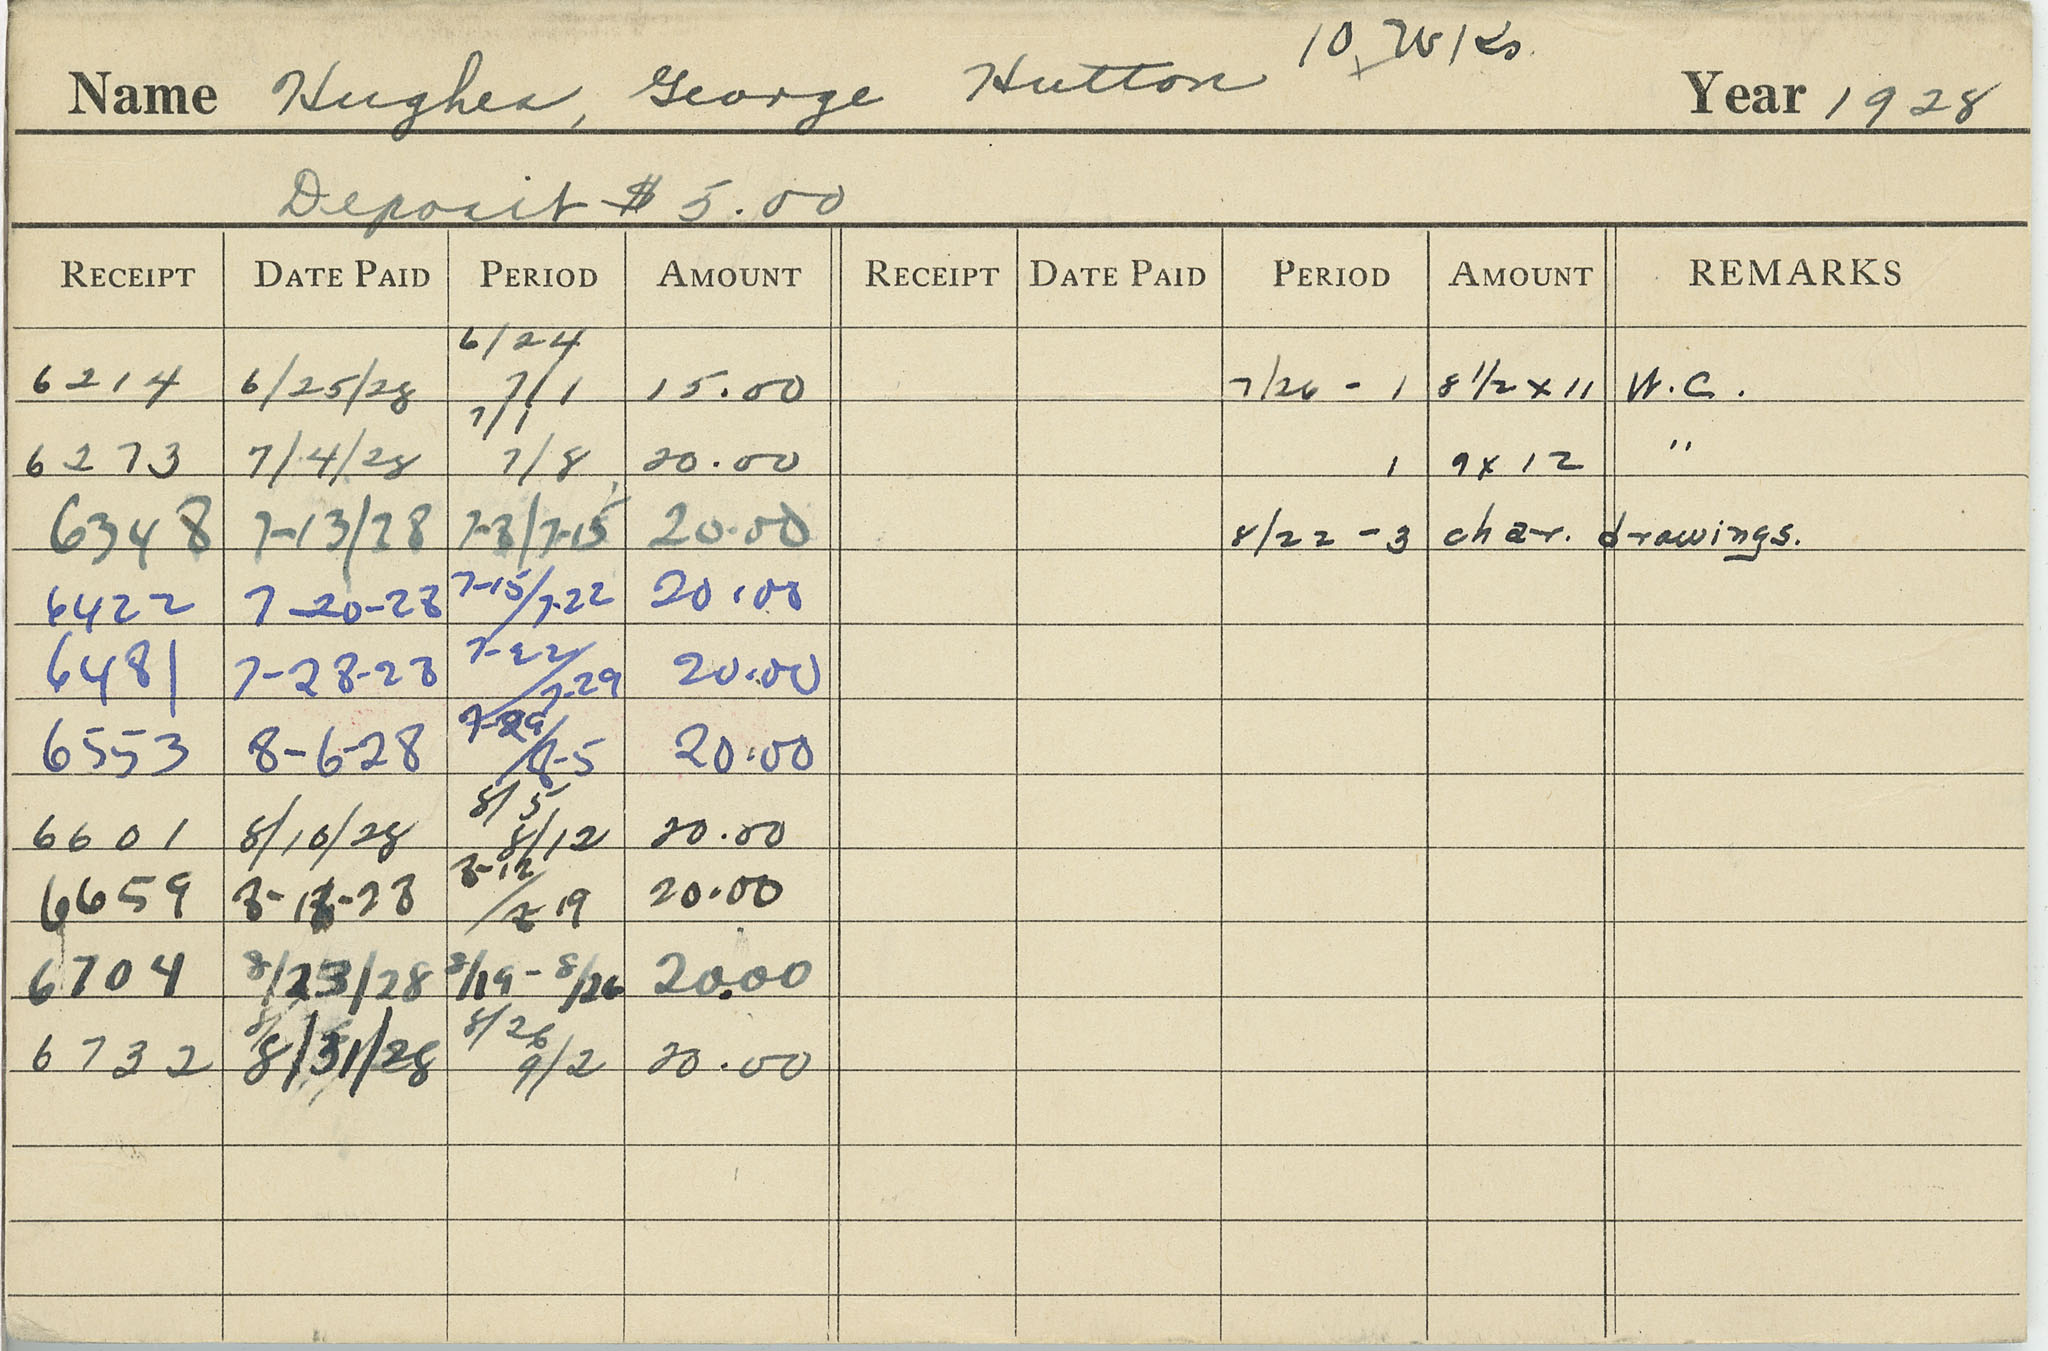 Name Hughes, George Hutton 10 Wks. Year 1928
Deposit $5.00
RECEIPT DATE PAID PERIOD AMOUNT RECEIPT DATE PAID PERIOD AMOUNT REMARKS
6/24
6214 6/25/28 7/1 15.00 7/26 - 1 8 1/2 x 11 W.C.
7/1
6273 7/4/28 7/8 20.00 1 9 x 12 "
6348 7-13/28 7-8/7-15 20.00 8/22 - 3 char. drawings.
6422 7-20-28 7-15/7-22 20.00
6481 7-28-28 7-22/7-29 20.00
6553 8-6-28 7-29/8-5 20.00
8/5
6601 8/10/28 8/12 20.00
6659 8-18-28 8-12/8 19 20.00
6704 8/23/28 8/19 - 8/26 20.00
8/26
6732 8/31/28 9/2 20.00